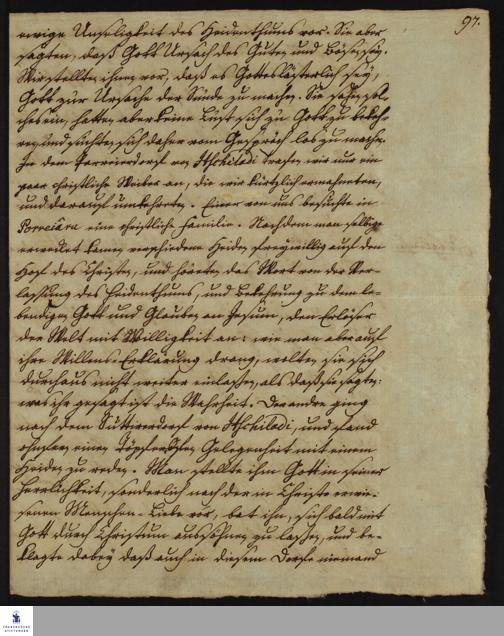 97.
ewige Unseligkeit des Heidenthums vor. Sie aber
sagten, daß Gott Ursach des Guten und Bösen sey.
Wir stellten ihnen vor, daß es Gotteslästerlich sey,
Gott zur Ursache der Sünde zu machen. Sie sahen sol-
ches ein, hatten aber keine Lust sich zu Gott zu bekeh-
ren, und suchten sich daher vom Gespräch los zu machen.
In dem Perreierdorf von Itschiladi trafen wir nur ein
paar christliche Weiber an, die wir kürtzlich ermahneten,
und darauf umkehrten. Einer von uns besuchte in
Poreiáru eine christliche Familie. Nachdem man selbige
erwecket kamen verschiedene Heiden freywillig auf den
Hof des Christen, und höreten das Wort von der Ver-
lassung des Heidenthums, und Bekehrung zu dem le-
bendigen Gott und Glauben an Jesum, den Erlöser
der Welt mit Willigkeit an: wie man aber auf
ihre Willens-Erklärung drang, wolten sie sich
durchaus nicht weiter einlassen, als daß sie sagten:
was ihr gesagt ist die Wahrheit. Der andre ging
nach dem Súttirerdorf von Itschiladi, und fand
ohnfern einen Töpferofen Gelegenheit mit einem
Heiden zu reden. Man stellte ihm Gott in seiner
Herrlichkeit, sonderlich nach der in Christo erwie-
senen Menschen-Liebe vor, bat ihn, sich bald mit
Gott durch Christum aussöhnen zu lassen, und be-
klagte dabey daß auch in diesem Dorfe niemand
FRANCKESCHE
STIFTUNGEN